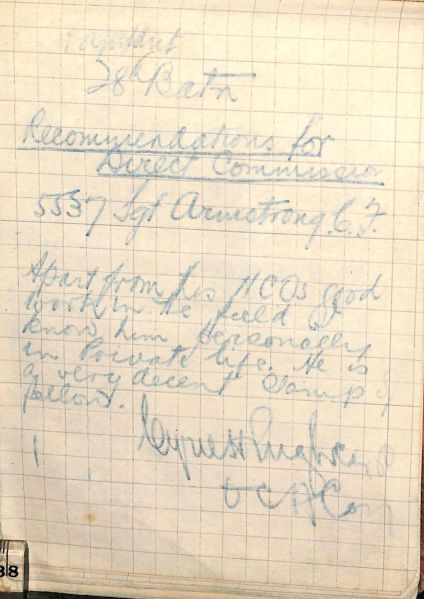 Adjutant
28th Batn
Recommendations for
Direct Commission
5537 Sgt Armstrong. C. F.
Apart from his NCOs good
work in the field I
know him personally
in Private life. He is
a very decent stamp of
fellow.
O C A Coy
38